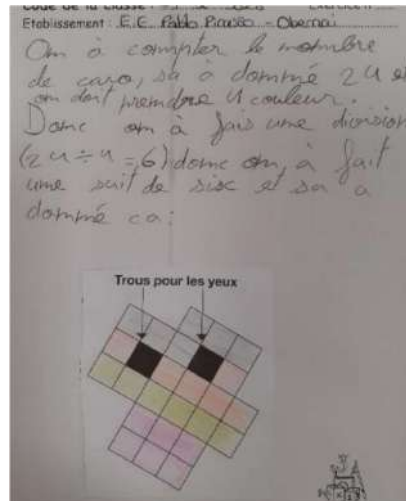 Code de la classe :
Etablissement : E.E. Pablo Picasso - Obernai
On à compter le nombre
de caro, sa à donné 24 et
on doit prendre 4 couleur.
Donc on à fais une division
(24 ÷ 4 = 6) donc on à fait
une suit de sisc et sa a
donné ca :
Trous pour les yeux